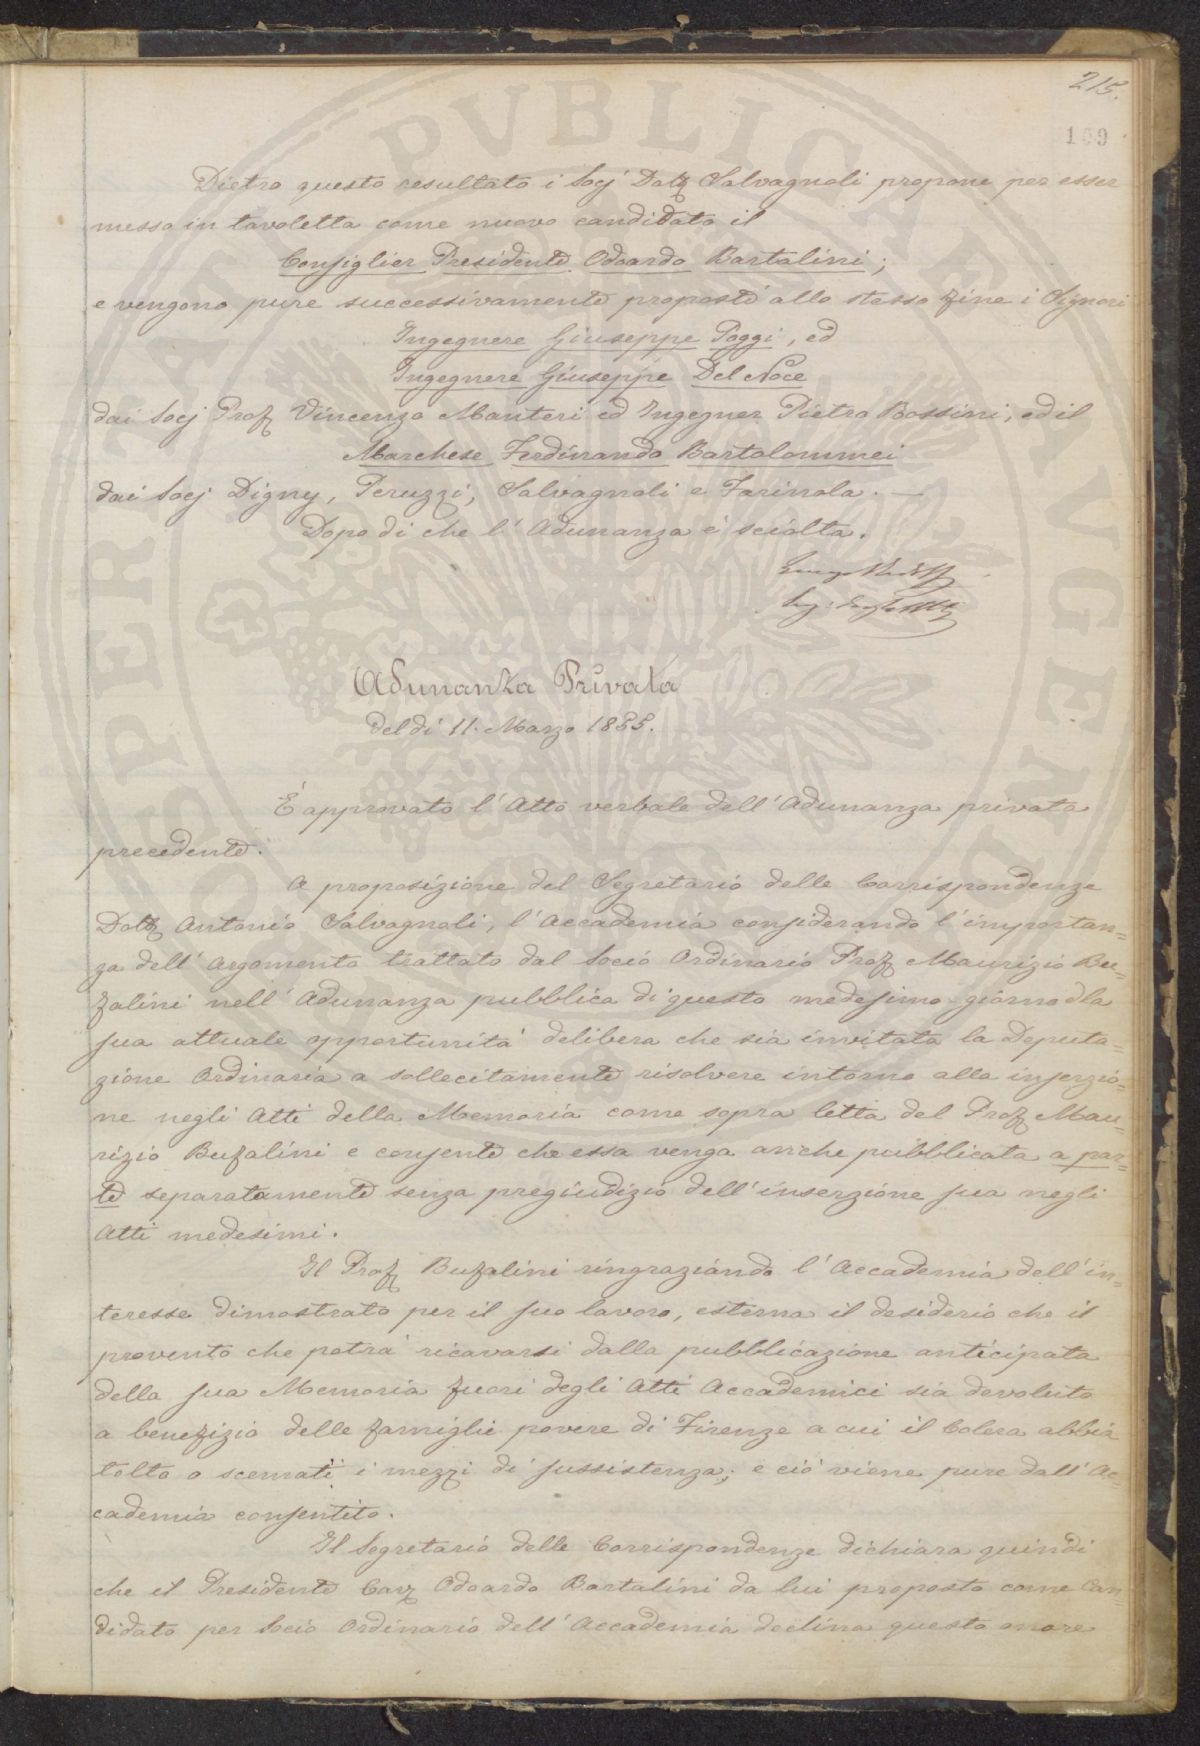 215.
109
Dietro questo resultato i Socj Dott Salvagnoli propone per esser
messo in tavoletta come nuovo candidato il
Consiglier Presidente Odoardo Bartalini;
e vengono pure successivamente proposti allo stesso fine i Signori
Ingegnere Giuseppe Poggi, ed
Ingegnere Giuseppe Del Noce
dai Socj Prof Vincenzo Manteri ed Ingegner Pietro Bossini, ed il
Marchese Ferdinando Bartolommei
dai Socj Digny, Peruzzi, Salvagnoli e Farinola. —
Dopo di che l'Adunanza è sciolta.
Adunanza Privata
del dì 11. Marzo 1855.
È approvato l'Atto verbale dell'Adunanza privata
precedente.
A proposizione del Segretario delle Corrispondenze
Dott Antonio Salvagnoli, l'Accademia considerando l'importan=
za dell'Argomento trattato dal Socio Ordinario Prof Maurizio Bu=
falini nell'Adunanza pubblica di questo medesimo giorno e la
sua attuale opportunità delibera che sia invitata la Deputa=
zione Ordinaria a sollecitamente risolvere intorno alla inserzio=
ne negli Atti della Memoria come sopra letta del Prof Mau=
rizio Bufalini e consente che essa venga anche pubblicata a par=
te separatamente senza pregiudizio dell'inserzione sua negli
Atti medesimi.
Il Prof Bufalini ringraziando l'Accademia dell'in=
teresse dimostrato per il suo lavoro, esterna il desiderio che il
provento che potrà ricavarsi dalla pubblicazione anticipata
della sua Memoria fuori degli Atti Accademici sia devoluto
a benefizio delle famiglie povere di Firenze a cui il Colera abbia
tolto o scemati i mezzi di sussistenza; e ciò viene pure dall'Ac=
cademia consentito.
Il Segretario delle Corrispondenze dichiara quindi
che il Presidente Cav Odoardo Bartalini da lui proposto come Can=
didato per Socio Ordinario dell'Accademia declina questo onore